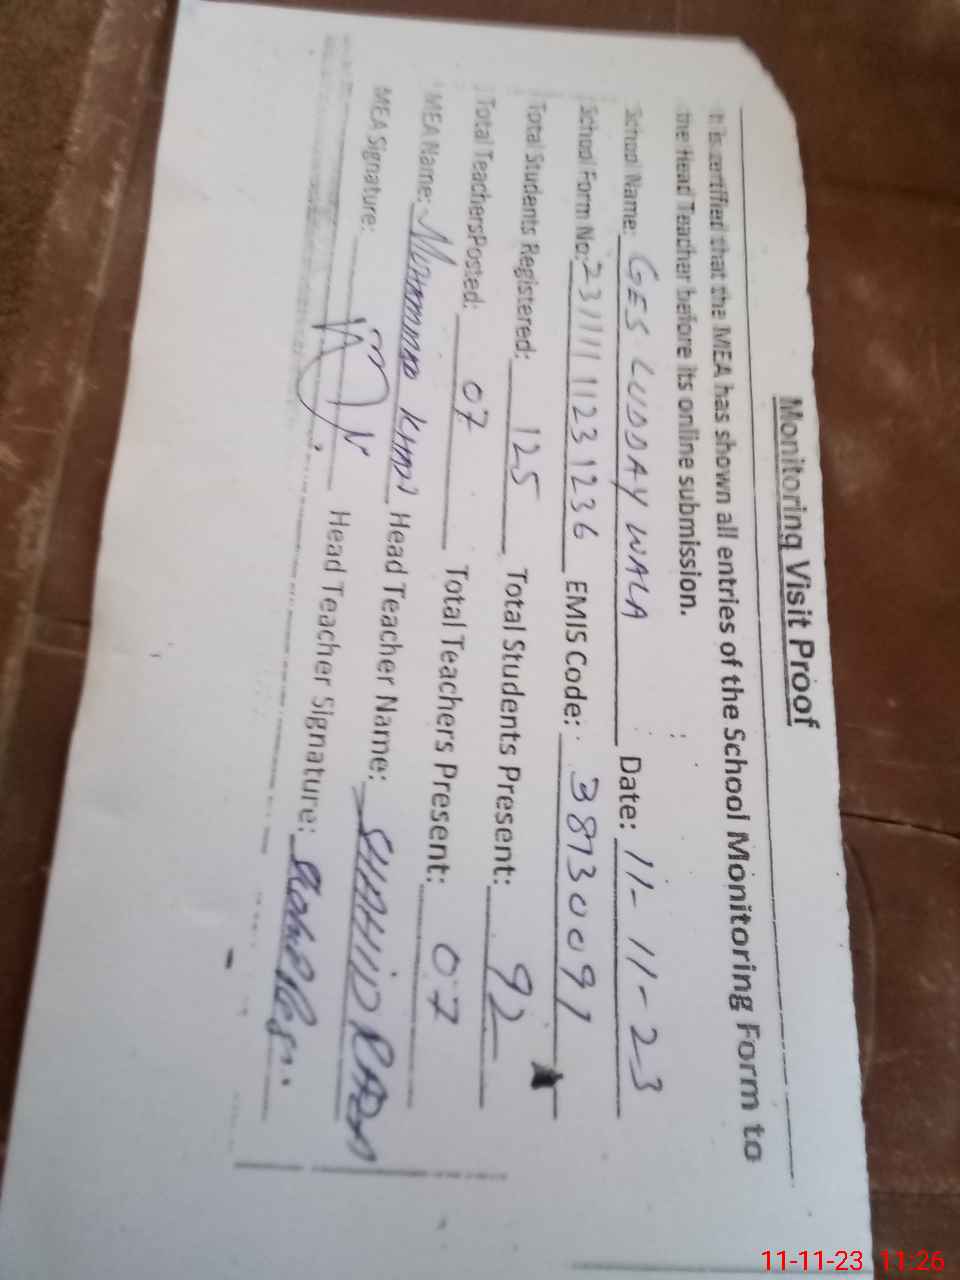 Monitoring Visit Proof
It is certified that the MEA has shown all entries of the School Monitoring Form to
the Head Teacher before its online submission.
School Name: GES LUDDAY WALA Date: 11-11-23
School Form No: 231111 1123 1236 EMIS Code: 38730091
Total Students Registered: 125 Total Students Present: 92
Total TeachersPosted: 07 Total Teachers Present: 07
MEA Name: MUHAMMAD Head Teacher Name: SHAHID RAZA
MEA Signature: Head Teacher Signature:
11-11-23 11:26